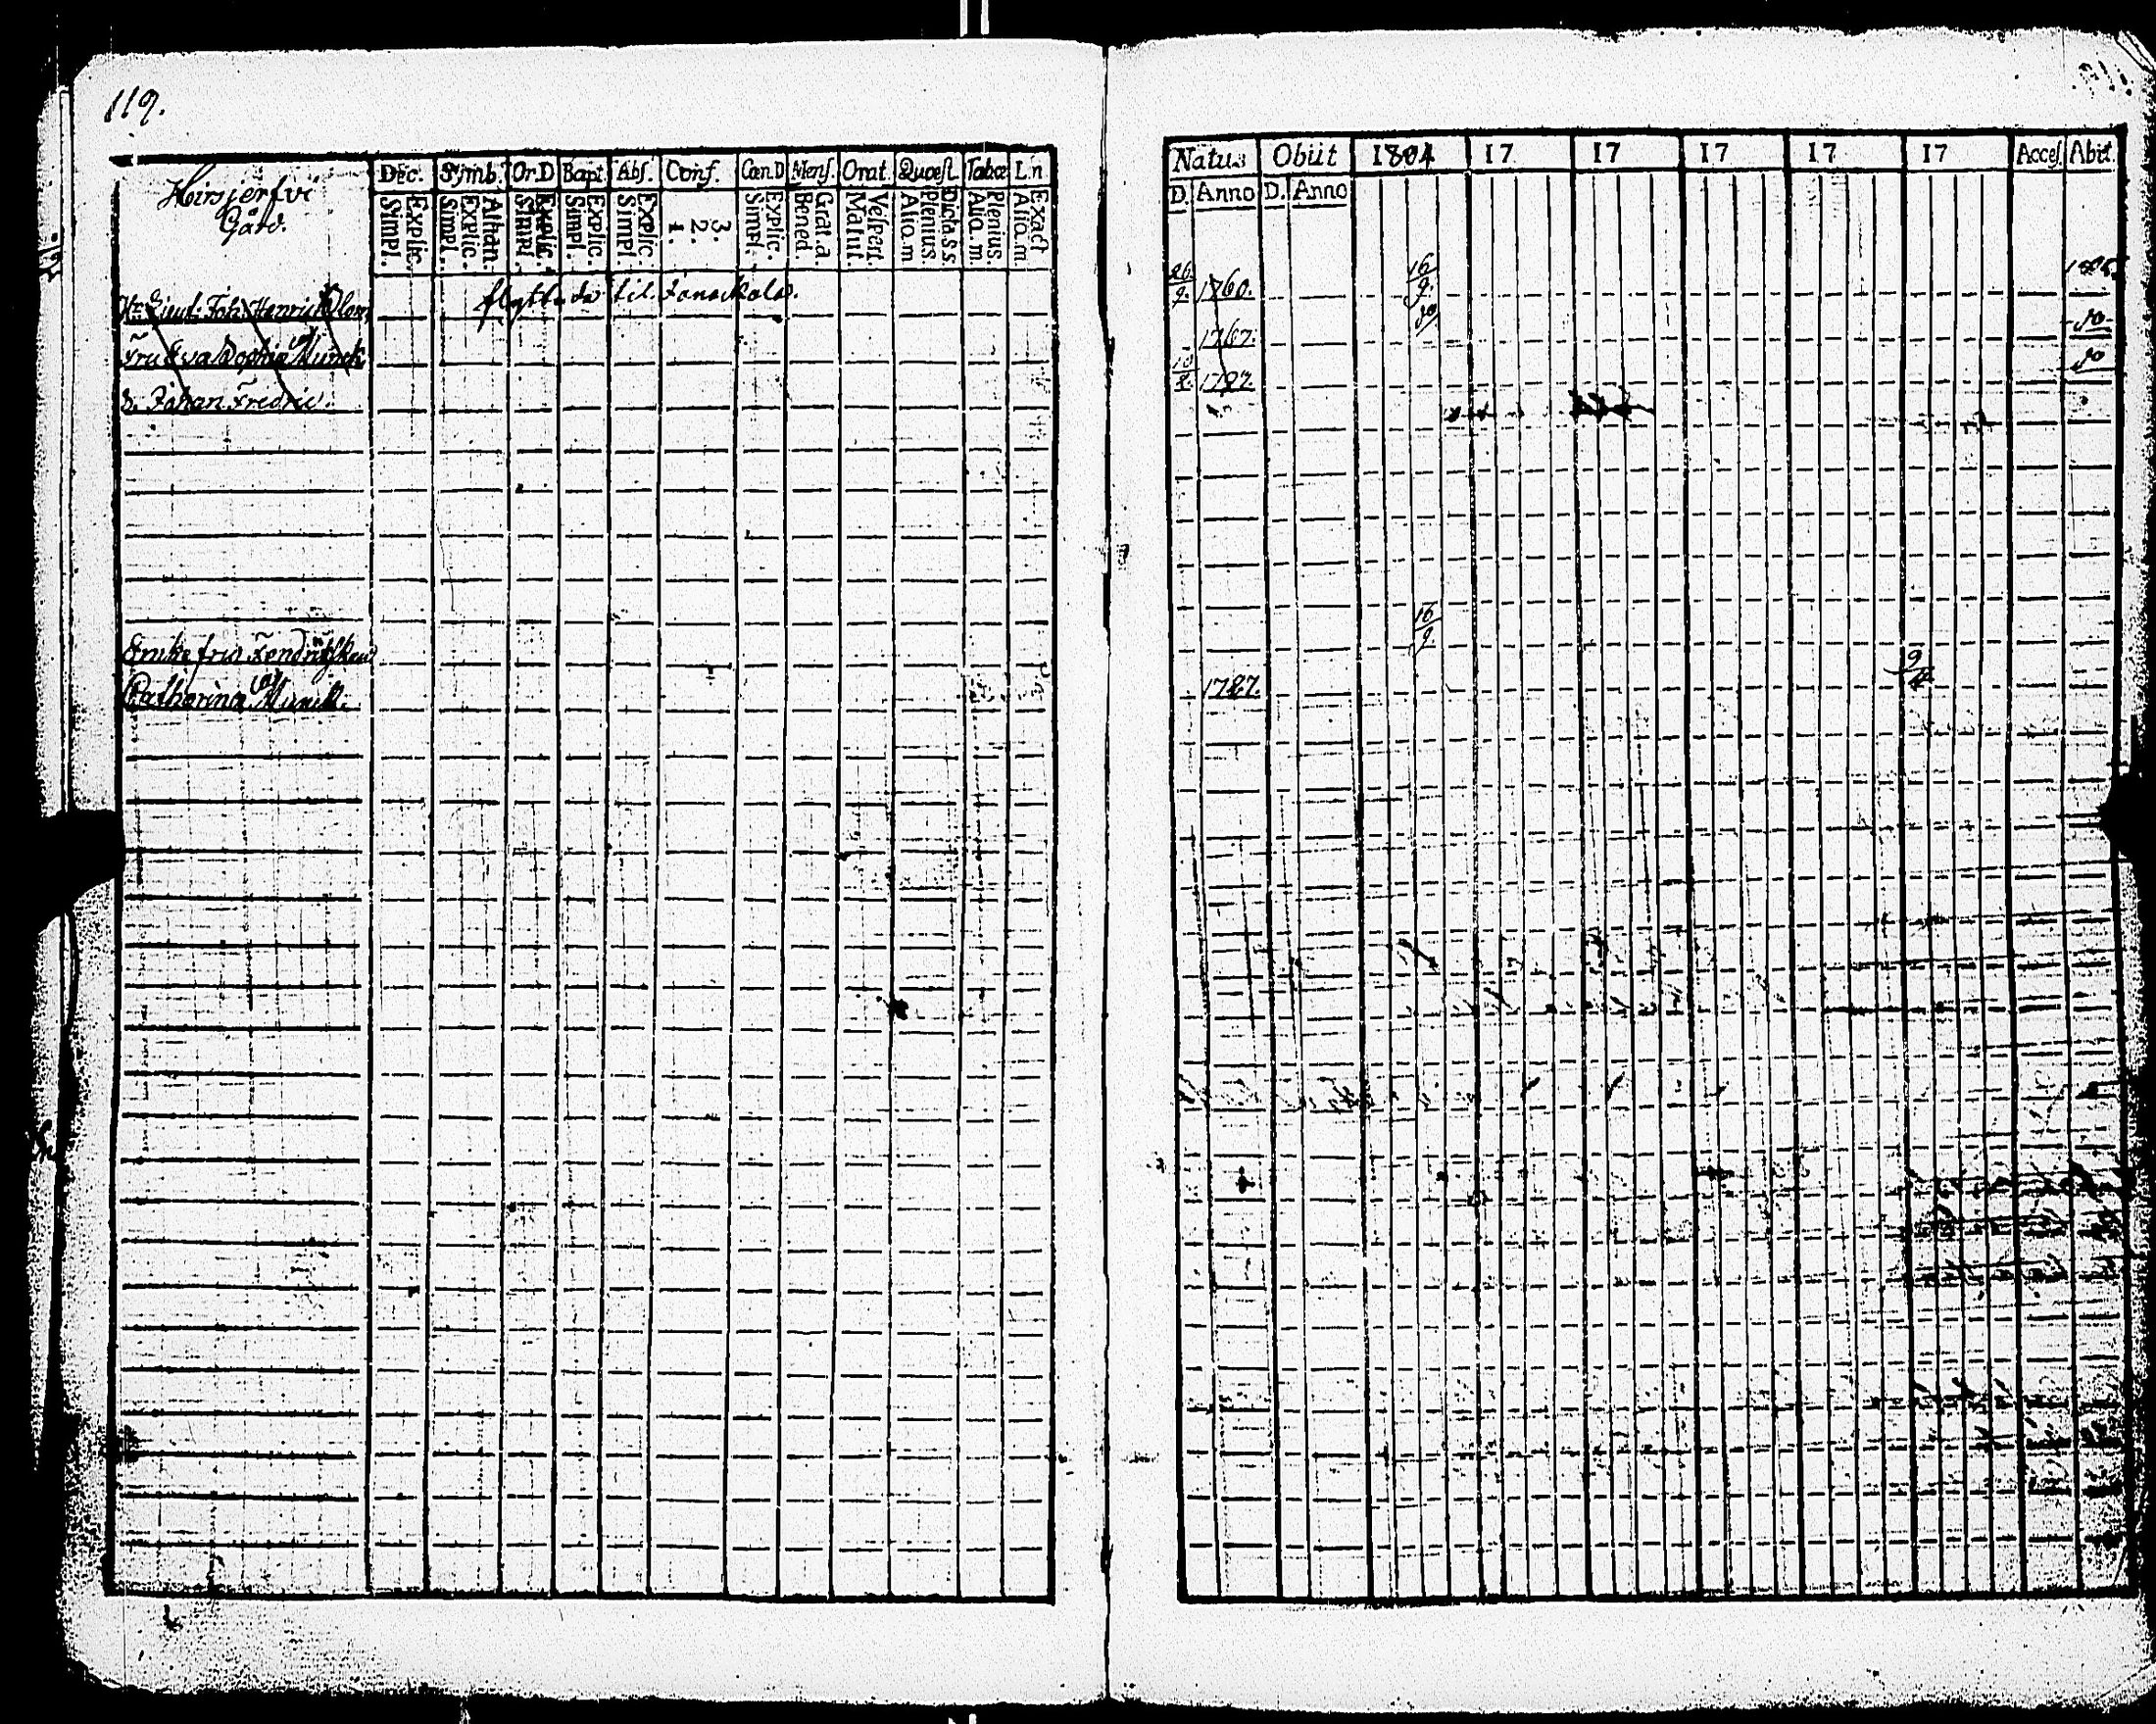 119.
Hirsjerfvi
Gård.
Dec. Sÿmb. Or.D Bapt. Abs. Conf. Cœn.D Mens. Orat. Quæst. Tabœ L.n
Explic. Simpl. Athan. Explic. Simpl. Explic. Simpl. Explic. Simpl. Explic. Simpl. 3. 2. 1. Explic. Simpl. Grat.a. Bened. Vespert. Matut. Dicta s.s. Plenius. Aliq.m Plenius. Aliq.m. Exact Aliq.m.
Hr Lieut. Joh. Henric
flyttade til Janackala.
Fru Eva Sophia Munck
S. Johan Fredric.
Enkefru Fendrickskan
Catharina Munck.
Natus Obiit 1804 17 17 17 17 17 Acces. Abit.
D. Anno D. Anno
26/9. 1760. 16/9. 1805.
1767. do do
10/8. 1787. do
16/9.
1727. 9/